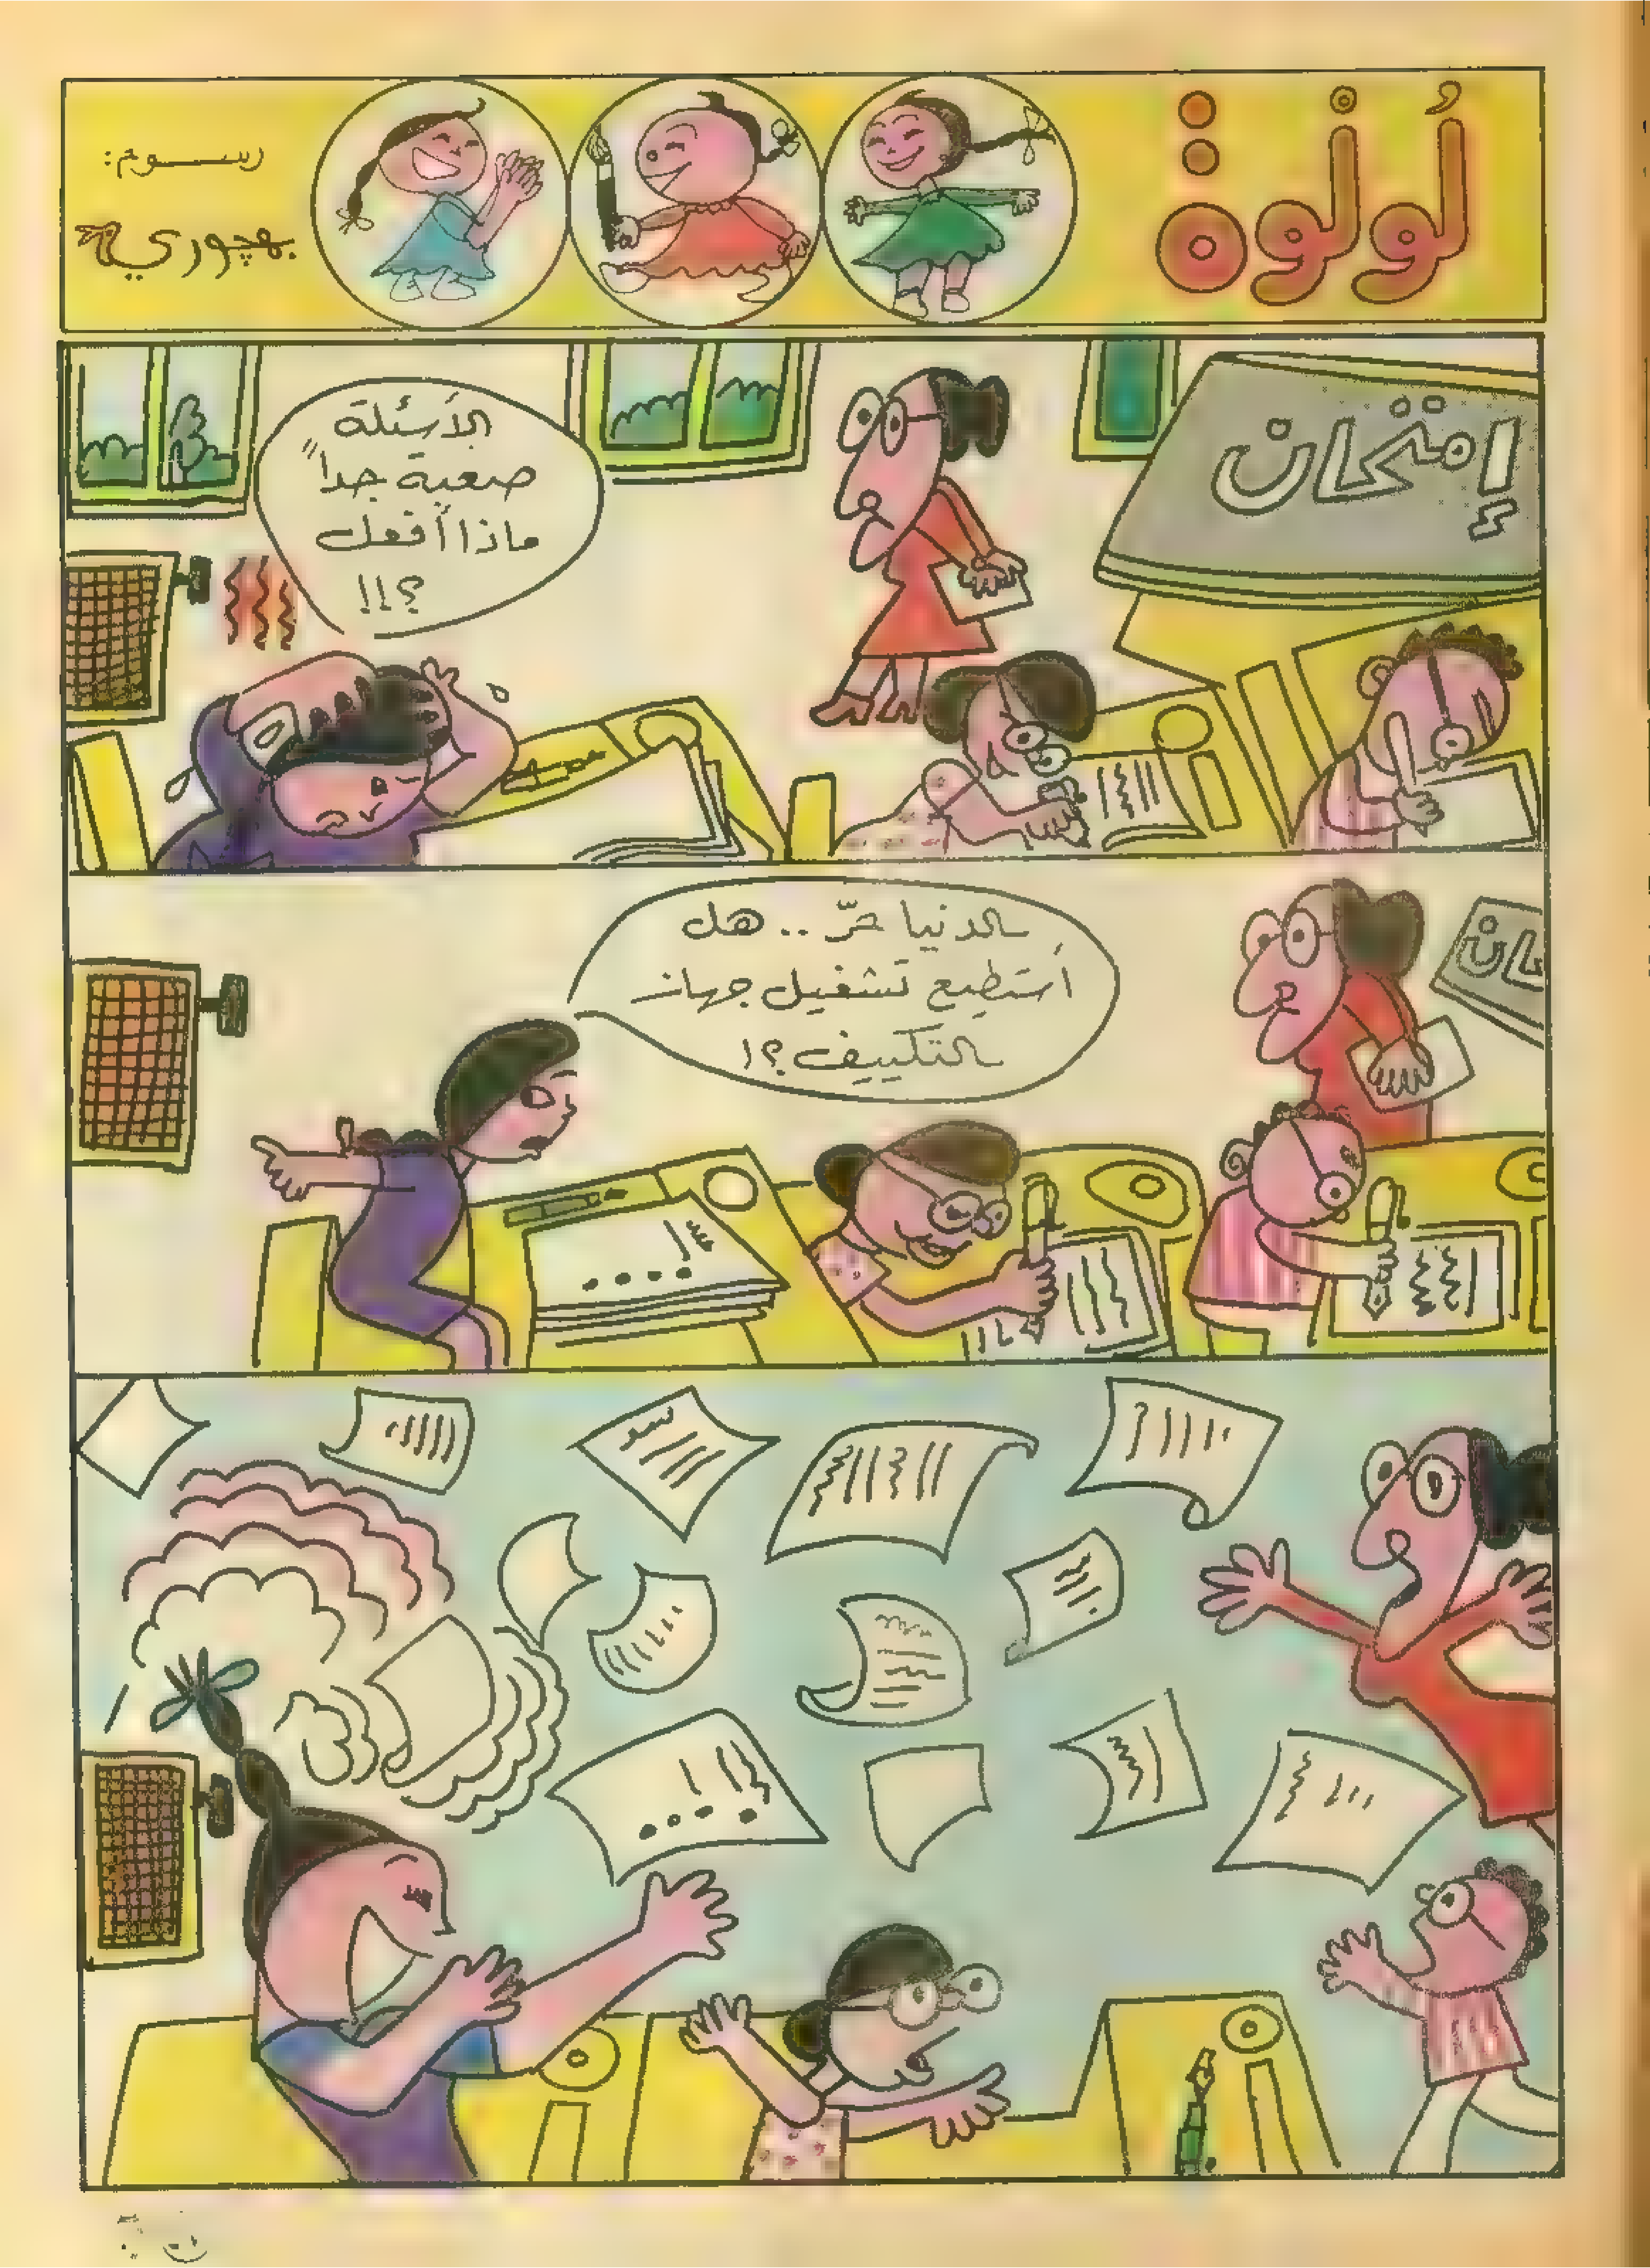 لُولْوة
رسوم:
بهجوري
إمتحان
الأسئلة
صعبة جداً
ماذا أفعل
؟!!
الدنيا حرّ .. هل
أستطيع تشغيل جهاز
التكييف؟!
حان